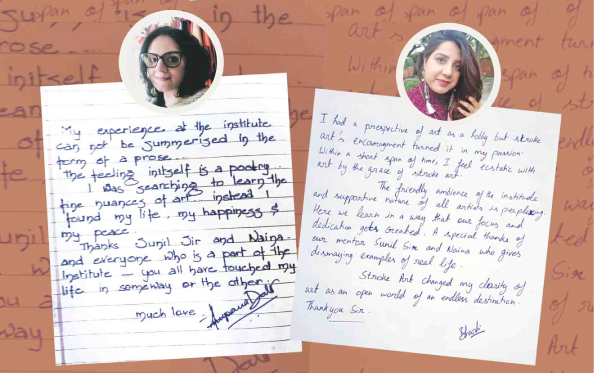 My experience at the institute
can not be summerised in the
form of a prose...
The feeling initself is a poetry...
I was searching to learn the
fine nuances of art instead I
found my life, my happiness &
my peace.
Thanks Sunil Sir and Naina
and everyone who is a part of the
Institute — you all have touched my
life in someway or the other...
much love
I had a prespective of art as a hobby but stroke
art's encouragment turned it in my passion.
Within a short span of time, I feel ecstatic with
art by the grace of stroke art.
The friendly ambience of the institute
and supportive nature of all artists is perplexing.
Here we learn in a way that our focus and
dedication gets created. A special thanks of
our mentor Sunil Sir and Naina who gives
dismaying examples of real life.
Stroke Art changed my clarity of
art as an open world of an endless destination.
Thankyou Sir.
Bharti